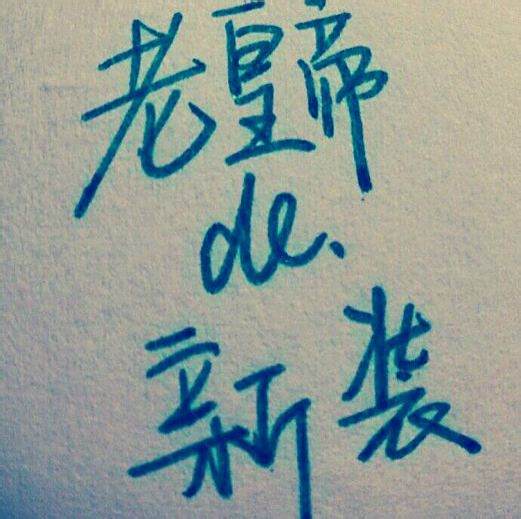 老皇帝
de.
新装